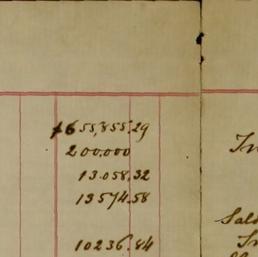 $655,855.29
200.000
13.058.32
In
13574.58
Sal
10236.84